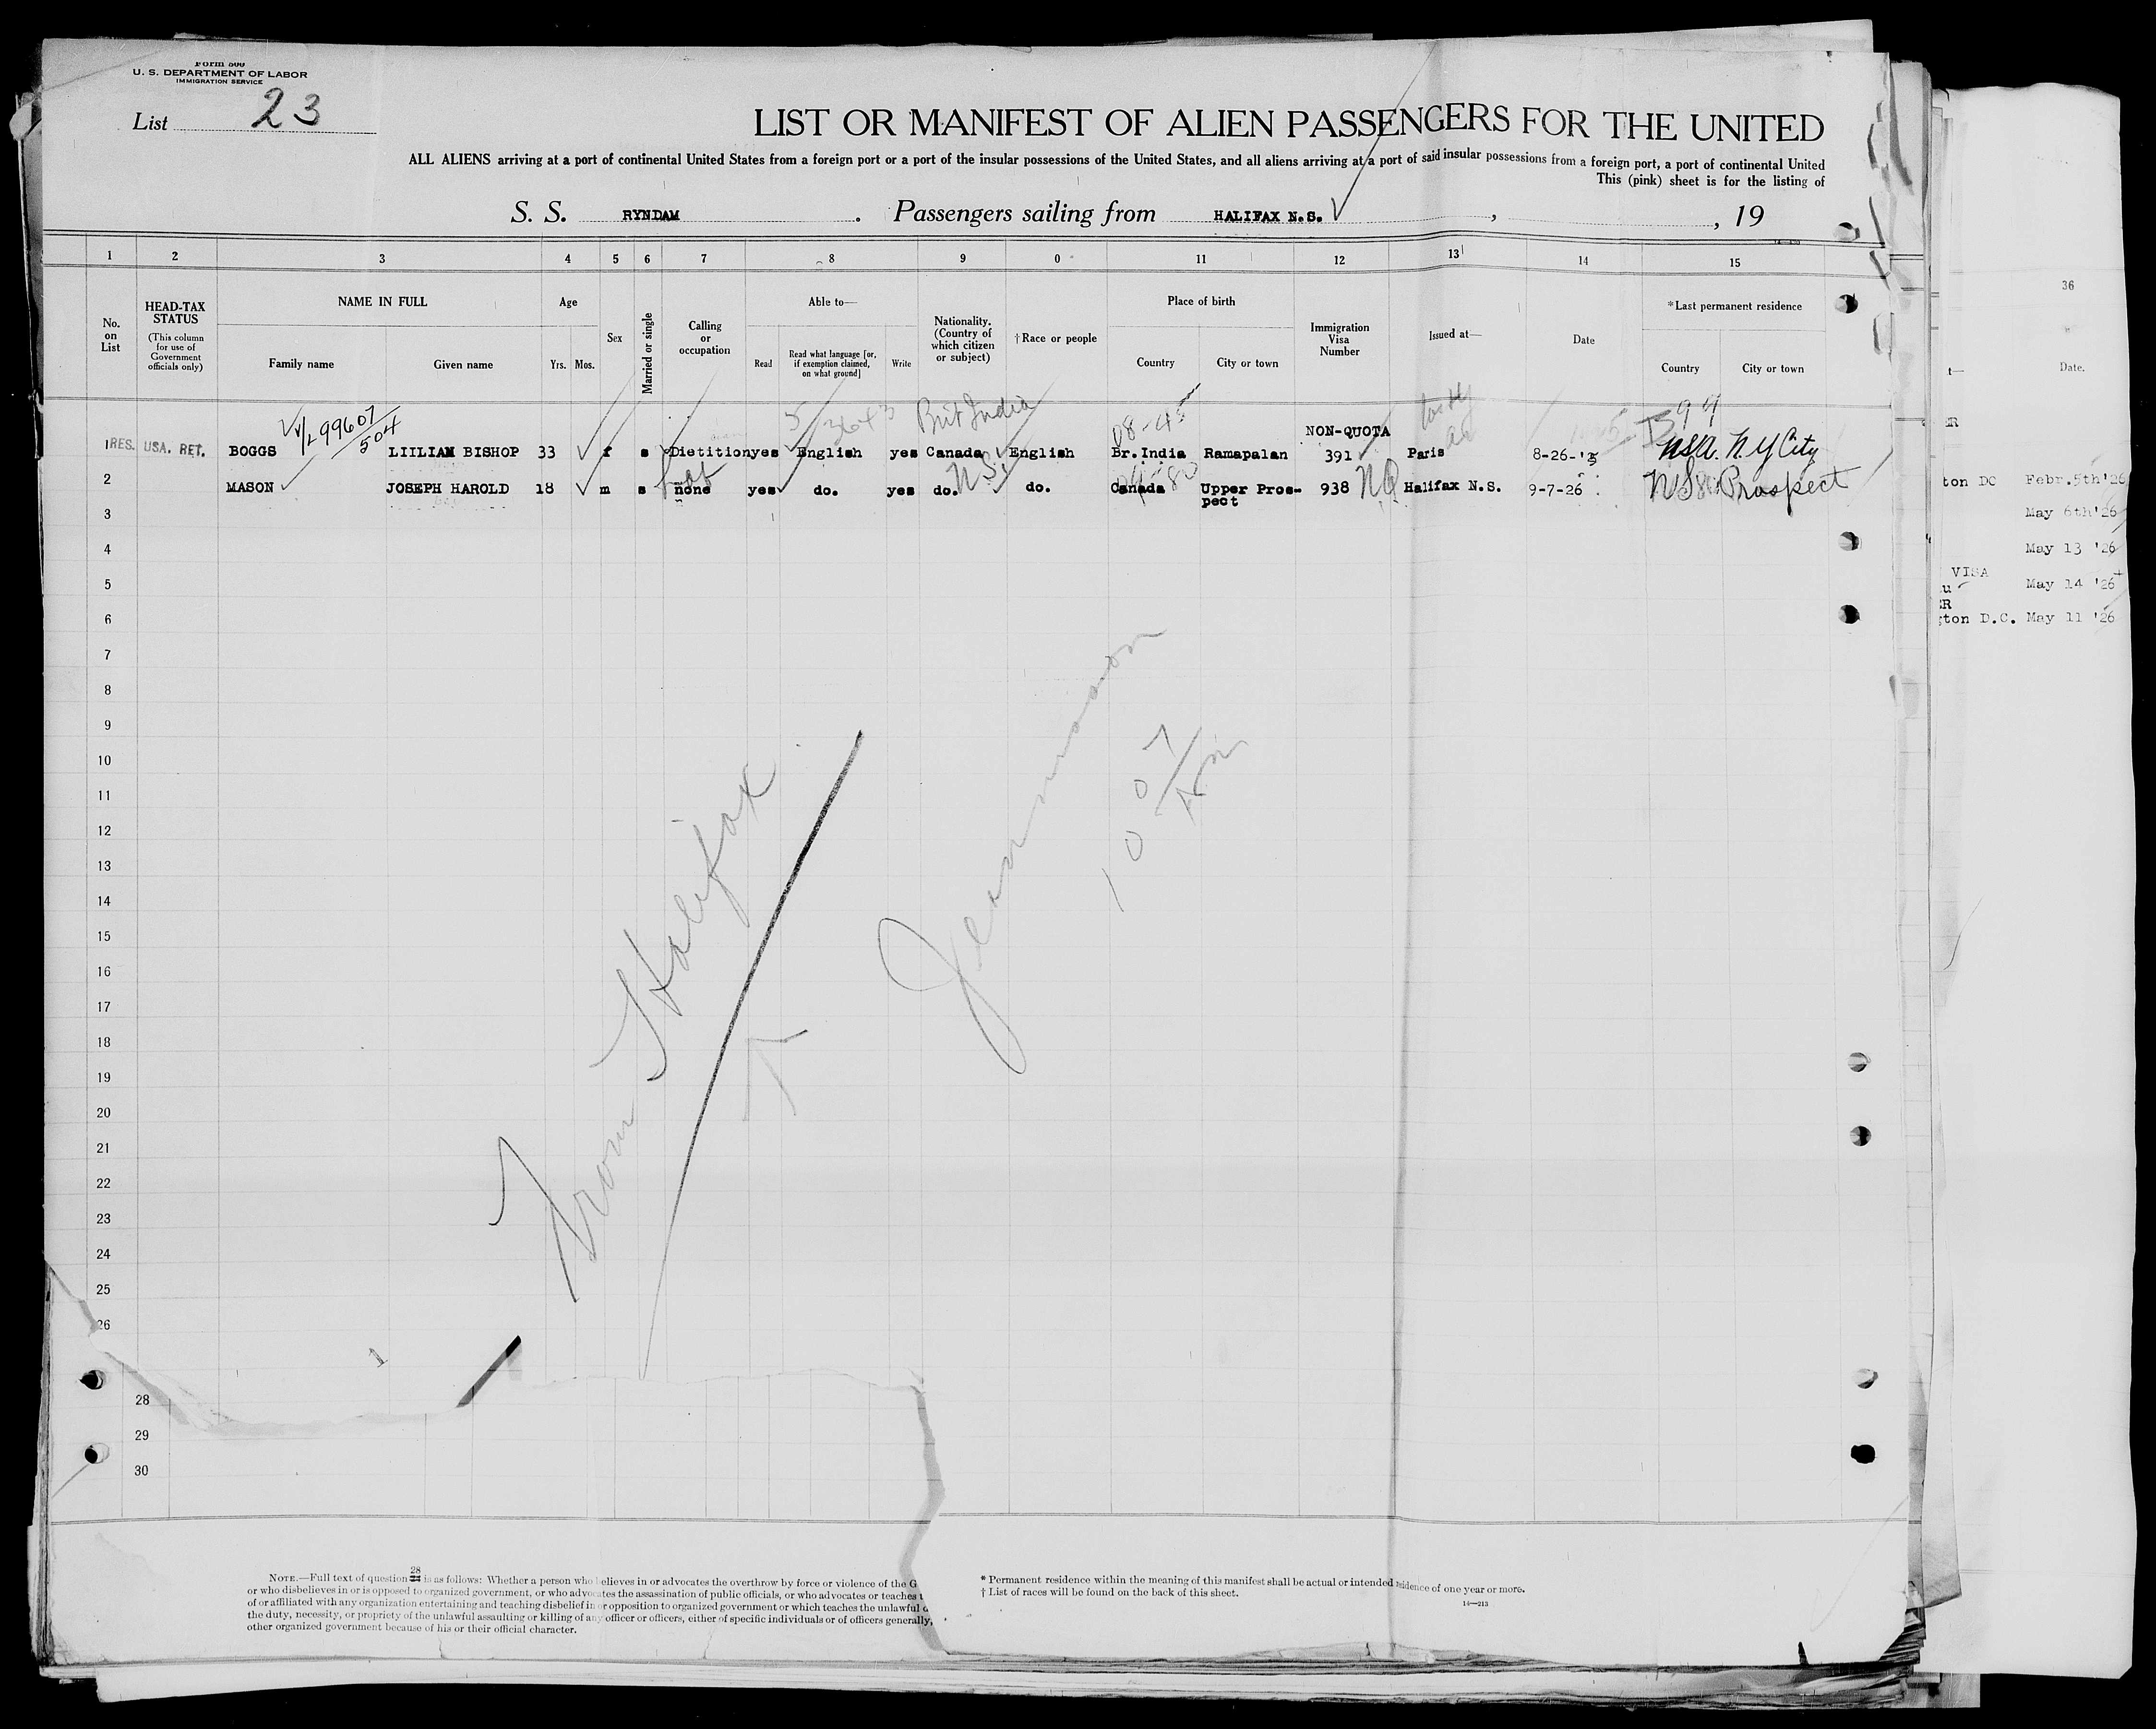 Form 500
U. S. DEPARTMENT OF LABOR
IMMIGRATION SERVICE
List 23
LIST OR MANIFEST OF ALIEN PASSENGERS FOR THE UNITED
ALL ALIENS arriving at a port of continental United States from a foreign port or a port of the insular possessions of the United States, and all aliens arriving at a port of said insular possessions from a foreign port, a port of continental United
This (pink) sheet is for the listing of
S. S. RYNDAM . Passengers sailing from HALIFAX N.S. , , 19
1 2 3 4 5 6 7 8 9 0 11 12 13 14 15
No. on List
HEAD-TAX STATUS (This column for use of Government officials only)
NAME IN FULL
Family name Given name
Age
Yrs. Mos.
Sex
Married or single
Calling or occupation
Able to—
Read
Read what language [or, if exemption claimed, on what ground]
Write
Nationality. (Country of which citizen or subject)
† Race or people
Place of birth
Country City or town
Immigration Visa Number
Issued at—
Date
* Last permanent residence
Country City or town
36
t—
Date.
99607/504
Brit India
08-45
99
NON-QUOTA
1 RES. USA. RET. BOGGS LIILIAM BISHOP 33 f s Dietition yes English yes Canada English Br. India Ramapalan 391 Paris 8-26-'5 USA. N Y City
2 MASON JOSEPH HAROLD 18 m s none yes do. yes do. NS do. Canada Upper Pros-pect 938 NQ Halifax N.S. 9-7-26 NS Prospect
3
4
5
6
7
8
9
10
11
12
13
14
15
16
17
18
19
20
21
22
23
24
25
26
28
29
30
ER
ton DC Febr. 5th '26
May 6th '26
May 13 '26
VISA
May 14 '26
ER
gton D.C. May 11 '26
From Halifax
1
NOTE.—Full text of question 28 is as follows: Whether a person who believes in or advocates the overthrow by force or violence of the G
or who disbelieves in or is opposed to organized government, or who advocates the assassination of public officials, or who advocates or teaches t
of or affiliated with any organization entertaining and teaching disbelief in or opposition to organized government or which teaches the unlawful
the duty, necessity, or propriety of the unlawful assaulting or killing of any officer or officers, either of specific individuals or of officers generally,
other organized government because of his or their official character.
* Permanent residence within the meaning of this manifest shall be actual or intended residence of one year or more.
† List of races will be found on the back of this sheet.
14—213